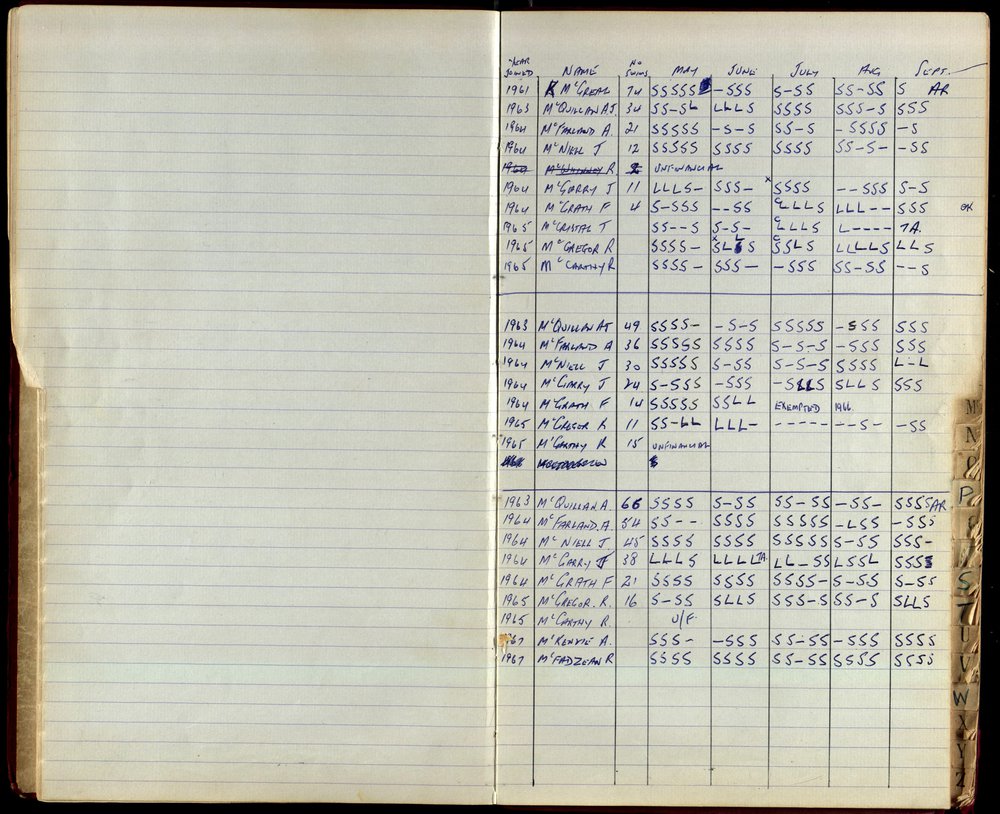 YEAR JOINED NAME NO SWIMS MAY JUNE JULY AUG SEPT.
1961 K McGREAL 74 SSSSS -SSS S-SS SS-SS S AR
1963 McQUILLAN A.J. 34 SS-SL LLLS SSSS SSS-S SSS
1964 McFARLAND A. 21 SSSSS -S-S SS-S -SSSS -S
1964 McNIELL J 12 SSSSS SSSS SSSS SS-S- -SS
1960 R 2 UNFINANCIAL
1964 McGARRY J 11 LLLS- SSS- x SSSS --SSS S-S
1964 McGRATH F 4 S-SSS --SS C LLLS LLL-- SSS OK
1965 McCRISTAL T SS--S S-S- C LLLS L---- TA.
1965 McGREGOR R SSSS- x SL S L C SSLS LLLLS LLS
1965 McCARTHY R SSSS- SSS- -SSS SS-SS --S
1963 McQUILLAN AT 49 SSSS- -S-S SSSSS -SSS SSS
1964 McFARLAND A 36 SSSSS SSSS S-S-S -SSS SSS
1964 McNIELL J 30 SSSSS S-SS S-S-S SSSS L-L
1964 McGARRY J 24 S-SSS -SSS -SLLS SLLS SSS
1964 McGRATH F 14 SSSSS SSLL EXEMPTED 1966.
1965 McGREGOR R 11 SS-LL LLL- ----- --S- -SS
1965 McCARTHY R 15 UNFINANCIAL
1963 McQUILLAN A. 66 SSSS S-SS SS-SS -SS- SSSS AR
1964 McFARLAND. A. 54 SS-- SSSS SSSSS -LSS -SSS
1964 McNIELL J 45 SSSS SSSS SSSSS S-SS SSS-
1964 McGARRY J 38 LLLLS LLLL TA. LL-SS LSSL SSSS
1964 McGRATH F 21 SSSS SSSS SSSS- S-SS S-SS
1965 McGREGOR. R. 16 S-SS SLLS SSS-S SS-S SLLS
1965 McCARTHY R. U/F.
67 McKENVIE A. SSS- -SSS SS-SS -SSS SSSS
1967 McFADZEAN R SSSS SSSS SS-SS SSSS SSSS
M
N
O
P
S
T
U
V
W
X
Y
Z